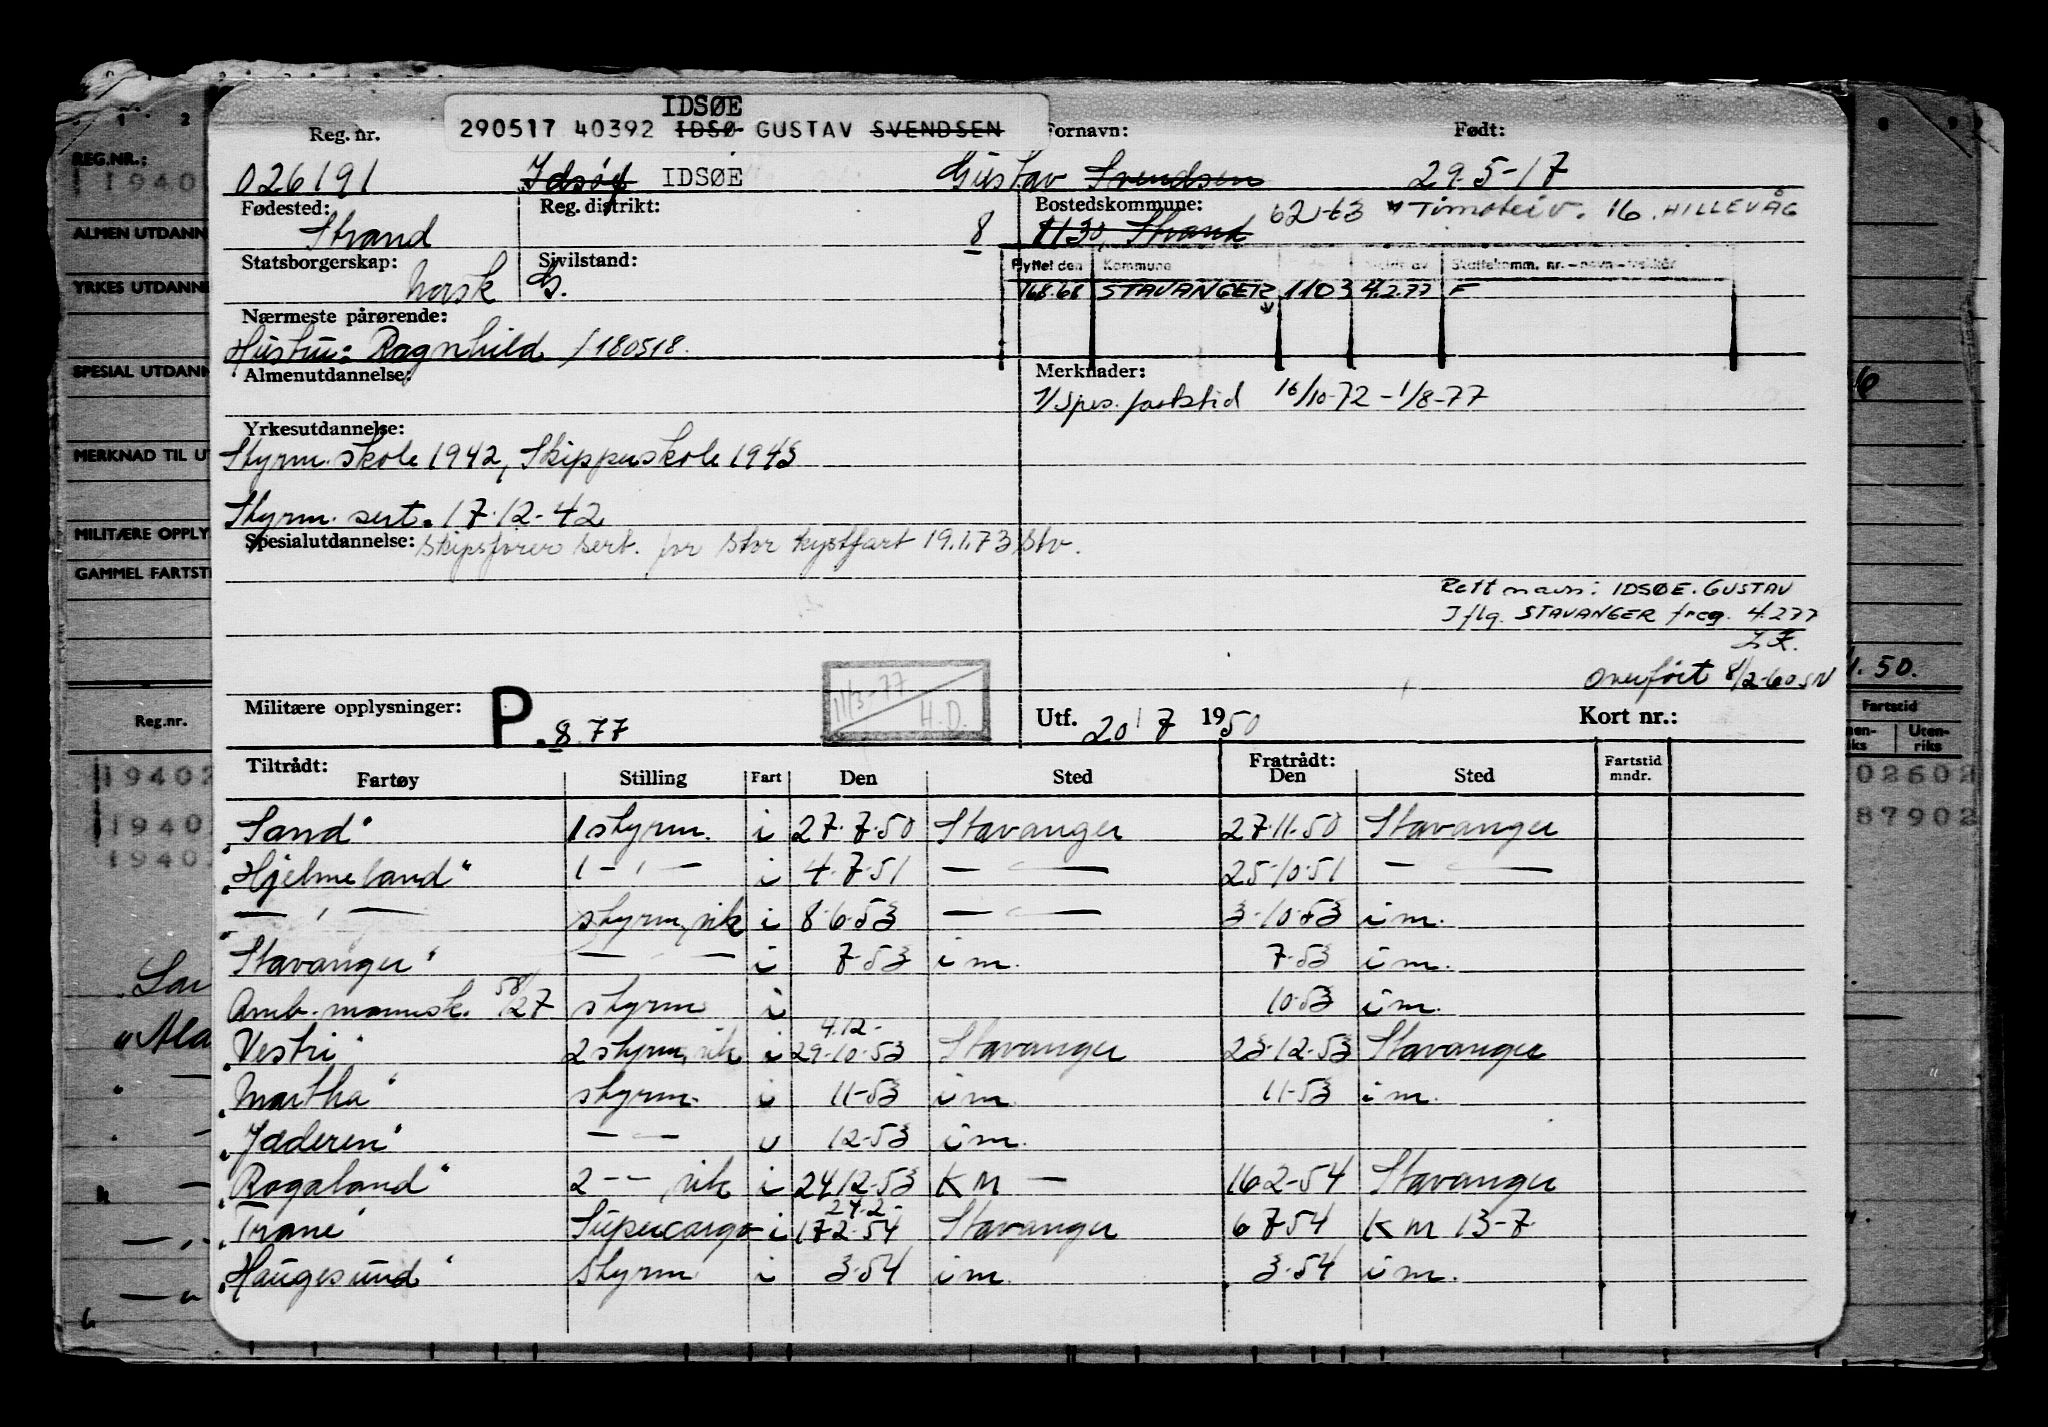 IDSØE
290517 40392 IDSØ GUSTAV SVENDSEN
Reg. nr. Fornavn: Født:
026191 Idsøe IDSØE Gustav Svendsen 29.5-17
Fødested: Reg. distrikt: Bostedskommune: 62-63 Timoteiv. 16. HILLEVÅG
Strand 8 1130, Strand
Statsborgerskap: Sivilstand: Flyttet den Kommune Skattekomm. nr.-navn-
norsk G. 16.8.68 STAVANGER 1103 4.2.77 F
Nærmeste pårørende:
Hustru: Ragnhild /180518.
Almenutdannelse: Merknader:
1/ Spes. fartstid 16/10-72 - 1/8-77
Yrkesutdannelse:
Styrm. skole 1942, Skipperskole 1945
Styrm. sert. 17-12-42
Spesialutdannelse: Skipsfører sert. for stor kystfart 19.1.73 Stv.
Rett navn: IDSØE. GUSTAV
Iflg. STAVANGER freg. 4.2.77
Overført 8/2-60 SN
11/3-77
H.D.
Militære opplysninger: P. 8.77 Utf. 20/7 1950 Kort nr.:
Tiltrådt: Fratrådt:
Fartøy Stilling Fart Den Sted Den Sted Fartstid mndr.
"Sand" 1 styrm. i 27-7-50 Stavanger 27-11-50 Stavanger
"Hjelmeland" 1 - " - i 4-7-51 — " — 25-10-51 — " —
— " — styrm, vik i 8-6-53 — " — 3-10-53 i m.
"Stavanger" — " — i 7-53 i m. 7-53 i m.
Amb. mannsk. 58/27 styrm i 10-53 i m.
4.12-
"Vestri" 2 styrm, vik i 29-10-53 Stavanger 23-12-53 Stavanger
"Martha" styrm. u 11-53 i m. 11-53 i m.
"Jæderen" — " — u 12-53 i m.
"Rogaland" 2 - " -, vik i 24/12-53 K M — 16 2-54 Stavanger
24.2-
"Trane" Supercargo i 17-2-54 Stavanger 6 7-54 K M 13-7
"Haugesund" Styrm i 3-54 i m. 3-54 i m.
REG.NR.:
1940
ALMEN UTDANN
YRKES UTDANNE
SPESIAL UTDANN
MERKNAD TIL U
MILITÆRE OPPLY
GAMMEL FARTSTI
Reg.nr.
19402
1940
1940
1.50.
Fartstid
Uten-
riks
02602
87902